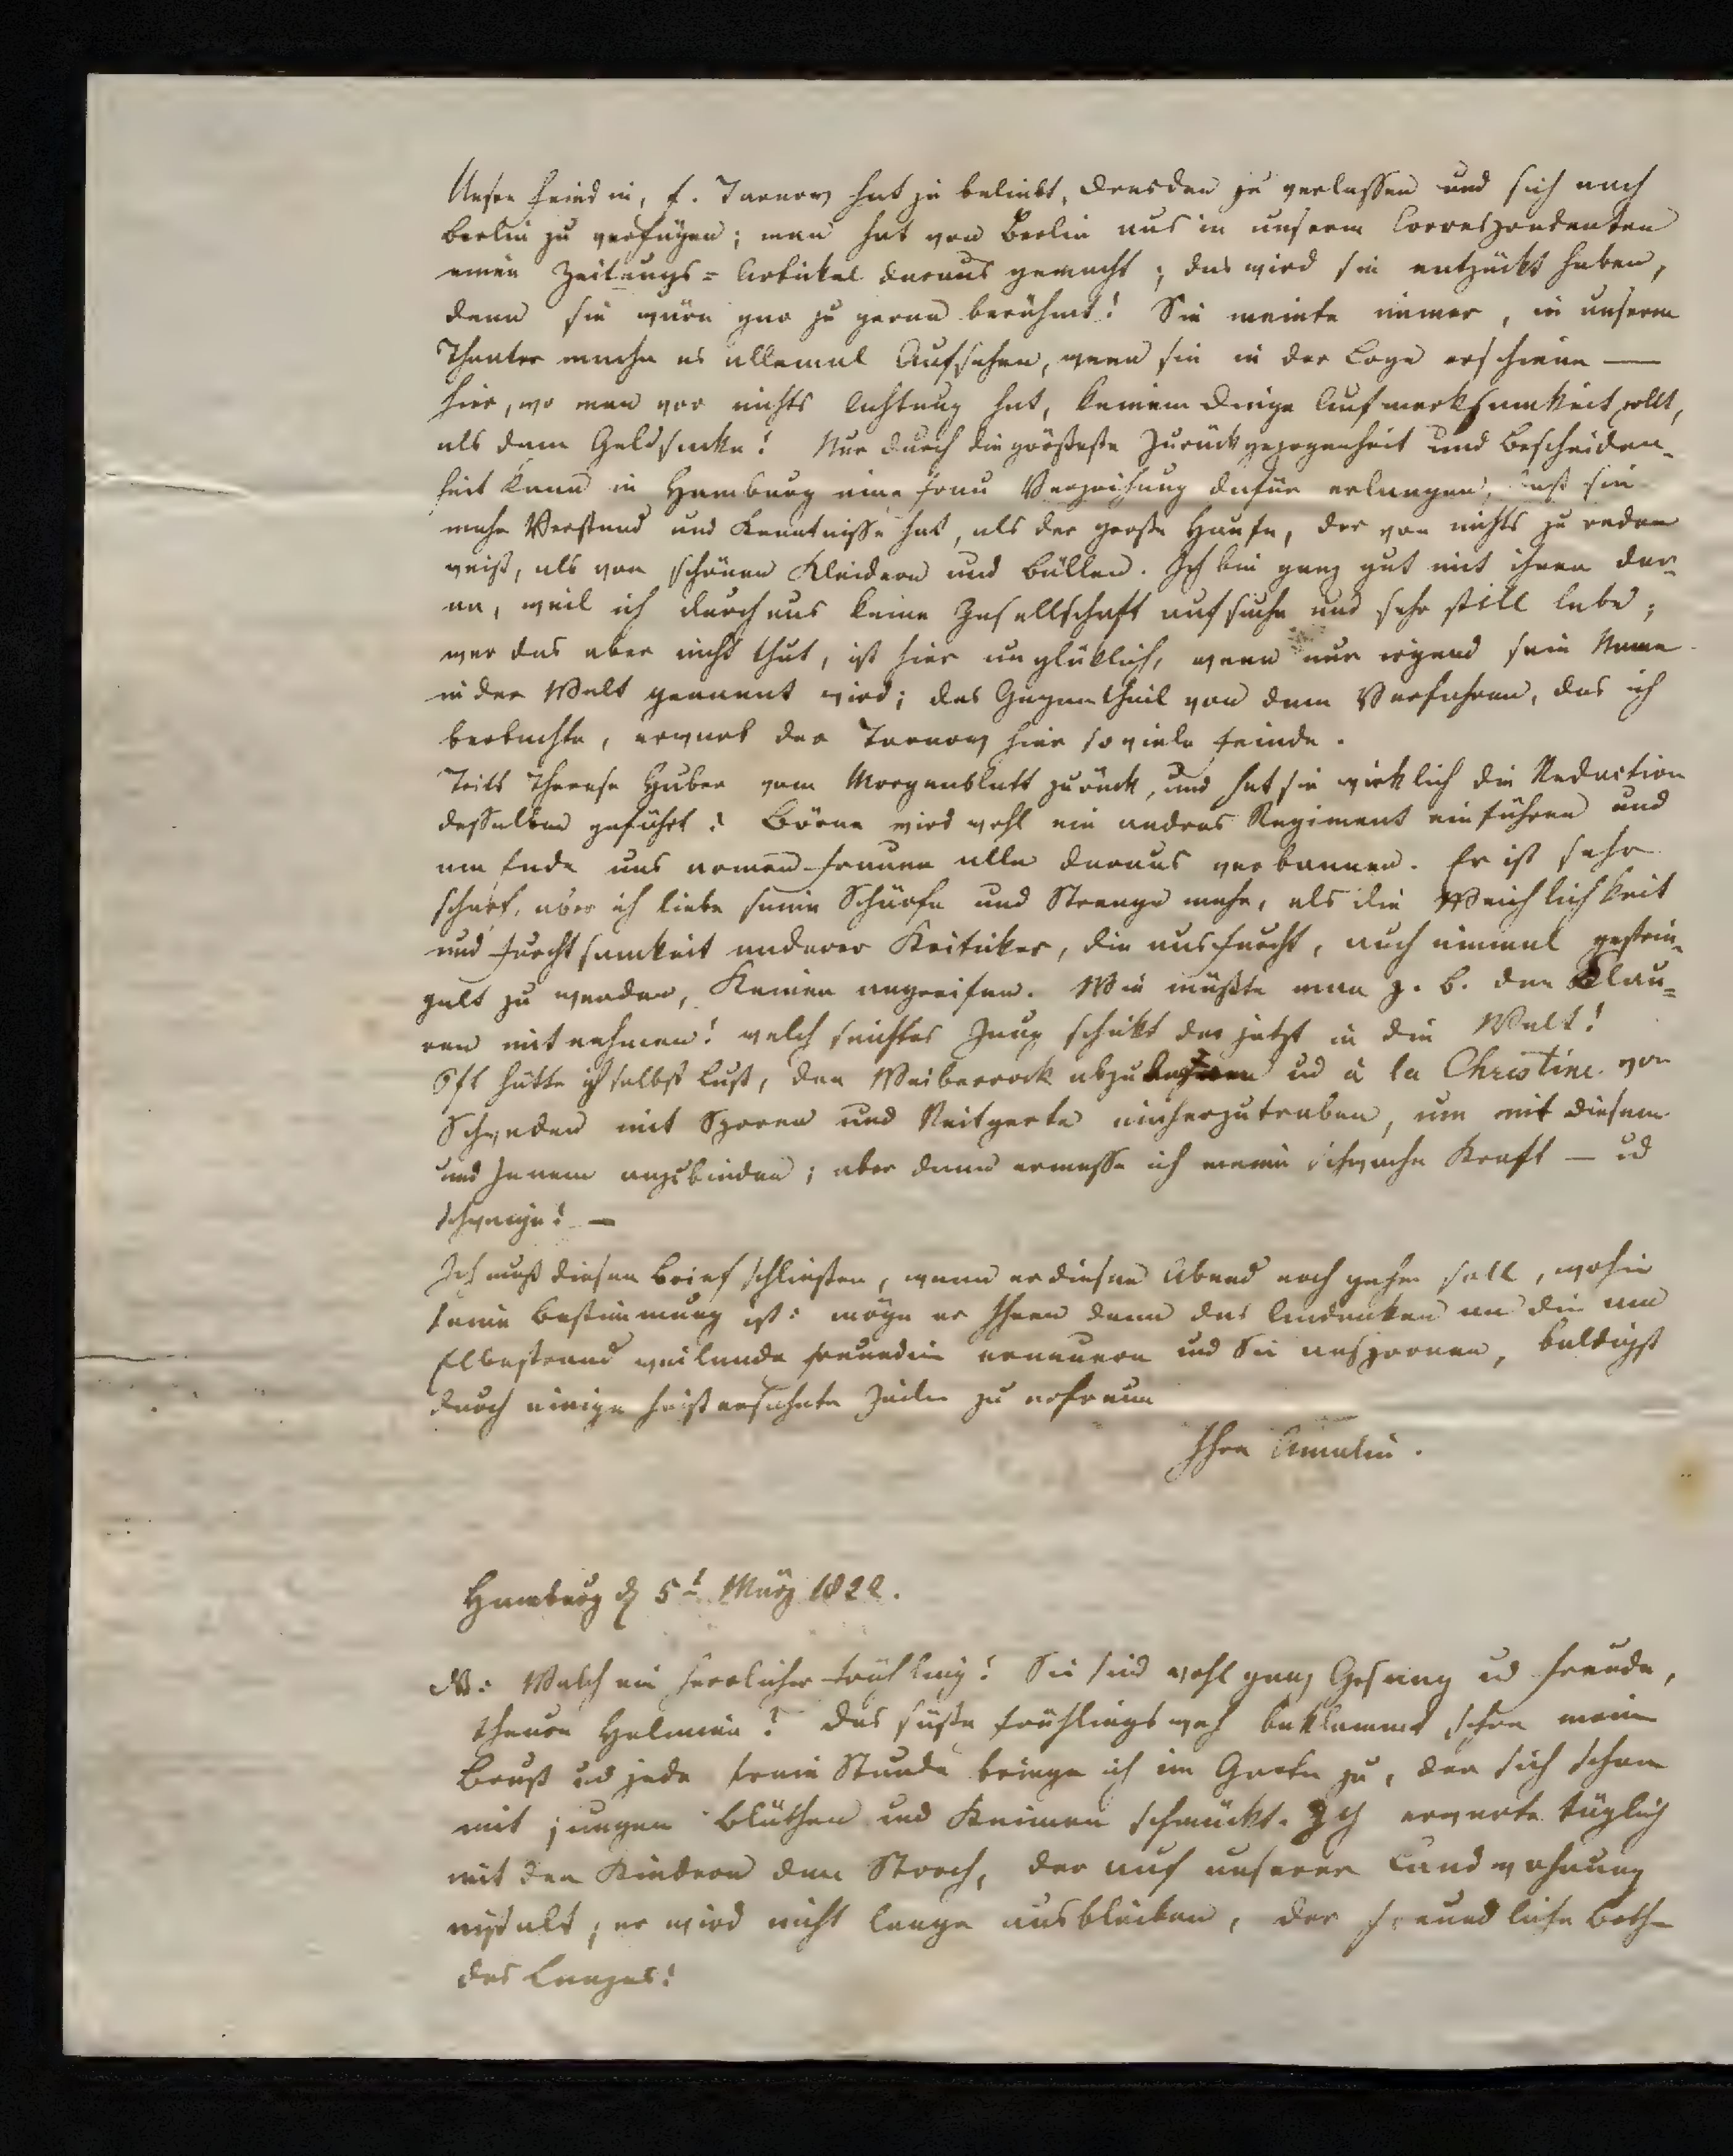 Unsre Freundin, F. Tarnow hat ja beliebt, Dresden zu verlassen und sich nach
Berlin zu verfügen; man hat von Berlin aus in unserm Correspondenten
einen Zeitungs=Artickel daraus gemacht; das wird sie entzückt haben,
denn sie wäre gar zu gerne berühmt! Sie meinte immer, in unserm
Theater mache es allemal Aufsehen, wenn sie in der Loge erschiene —
hier, wo man vor nichts Achtung hat, keinem Dinge Aufmerksamkeit zollt,
als dem Geldsacke! Nur durch die größeste Zurückgezogenheit und Bescheiden-
heit kann in Hamburg eine Frau Verzeihung dafür erlangen, daß sie
mehr Verstand und Kenntnisse hat, als der große Haufe, der von nichts zu reden
weiß, als von schönen Kleidern und Bällen. Ich bin ganz gut mit ihnen dar-
an, weil ich durchaus keine Gesellschaft aufsuche und sehr still lebe;
wer das aber nicht thut, ist hier unglüklich, wenn nur irgend sein Name
in der Welt genannt wird; das Gegentheil von dem Verfahren, das ich
beobachte, erwarb der Tarnow hier so viele Feinde.
Tritt Therese Huber vom Morgenblatt zurück, und hat sie wirklich die Redaction
desselben geführt? Börne wird wohl ein andres Regiment einführen und
am Ende uns armen Frauen alle daraus verbannen. Er ist sehr
scharf, aber ich liebe seine Schärfe und Strenge mehr, als die Weichlichkeit
und Furchtsamkeit anderer Kritiker, die aus Furcht, auch einmal gestrie-
gelt zu werden, Keinen angreifen. Wie müßte man z. B. den Clau=
ren mitnehmen! welch seichtes Zeug schickt der jetzt in die Welt!
Oft hätte ich selbst Lust, den Weiberrock abzu ud à la Christine von
Schweden mit Sporen und Reitgerte einherzutraben, um mit diesem
und Jenem anzubinden; aber dann ermesse ich meine schwache Kraft — ud
schweige! —
Ich muß diesen Brief schließen, wenn er diesen Abend noch gehen soll, wohin
seine Bestimmung ist: möge er Ihnen denn das Andenken an die am
Elbestrand weilende Freundin erneuern und Sie anspornen, baldigst
durch einige heißersehnte Zeilen zu erfreun
Ihre Amalie.
Hamburg d 5t März 1822.
NB: Welch ein herrlicher Frühling! Sie sind wohl ganz Gesang ud Freude,
theure Helmine? Das süße Frühlingsweh beklemmt schon meine
Brust ud jede freie Stunde bringe ich im Garten zu, der sich schon
mit jungen Blüthen und Keimen schmückt. Ich erwarte täglich
mit den Kindern den Storch, der auf unserer Landwohnung
nistelt; er wird nicht lange ausbleiben, der freundliche Bothe
des Lenzes!